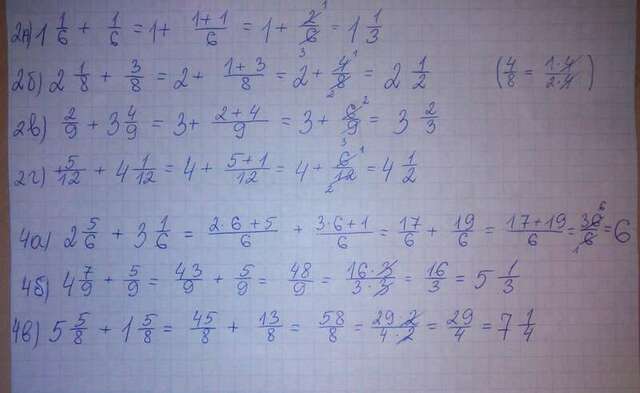 2а) 1 1/6 + 1/6 = 1 + (1+1)/6 = 1 + 2/6 = 1 1/3
2б) 2 1/8 + 3/8 = 2 + (1+3)/8 = 2 + 4/8 = 2 1/2 (4/8 = (1·4)/(2·4))
2в) 2/9 + 3 4/9 = 3 + (2+4)/9 = 3 + 6/9 = 3 2/3
2г) 5/12 + 4 1/12 = 4 + (5+1)/12 = 4 + 6/12 = 4 1/2
4а) 2 5/6 + 3 1/6 = (2·6+5)/6 + (3·6+1)/6 = 17/6 + 19/6 = (17+19)/6 = 36/6 = 6
4б) 4 7/9 + 5/9 = 43/9 + 5/9 = 48/9 = (16·3)/(3·3) = 16/3 = 5 1/3
4в) 5 5/8 + 1 5/8 = 45/8 + 13/8 = 58/8 = (29·2)/(4·2) = 29/4 = 7 1/4